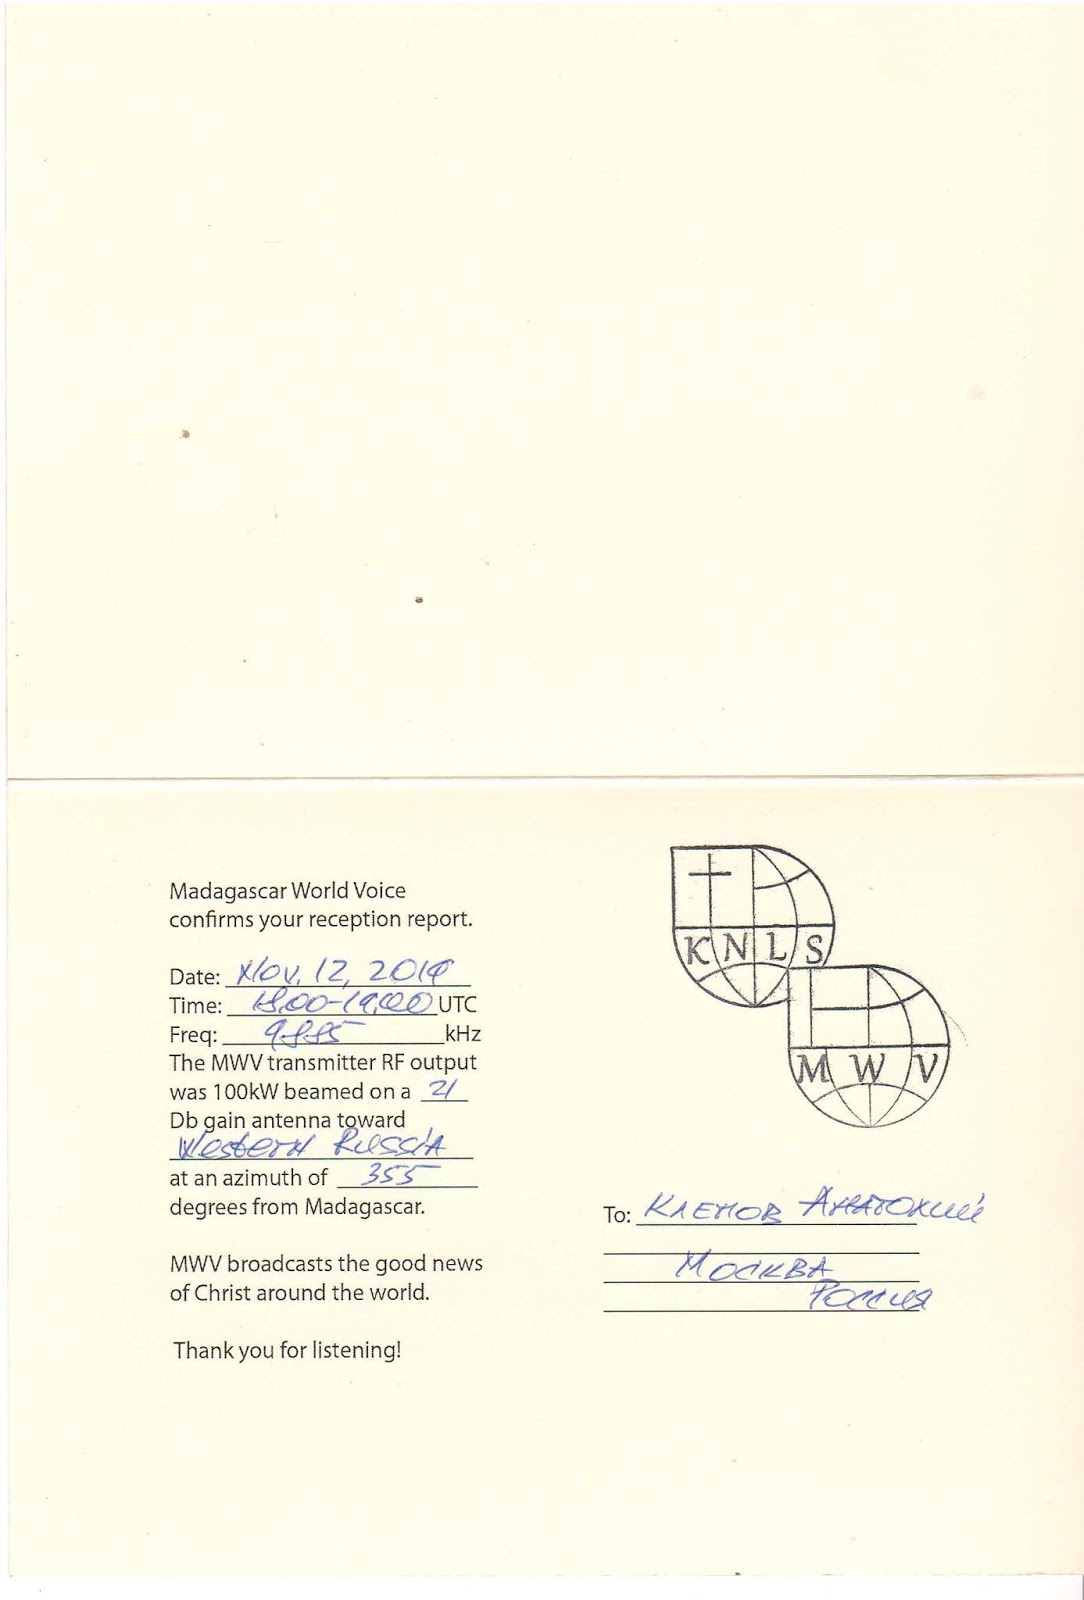 Madagascar World Voice
confirms your reception report.
Date: Nov, 12, 2019
Time: 18,00-19,00 UTC
Freq: 9885 kHz
The MWV transmitter RF output
was 100kW beamed on a 21
Db gain antenna toward
Western Russia
at an azimuth of 355
degrees from Madagascar.
MWV broadcasts the good news
of Christ around the world.
Thank you for listening!
KNLS
MWV
To: Клепов Анатолий
Москва
Россия